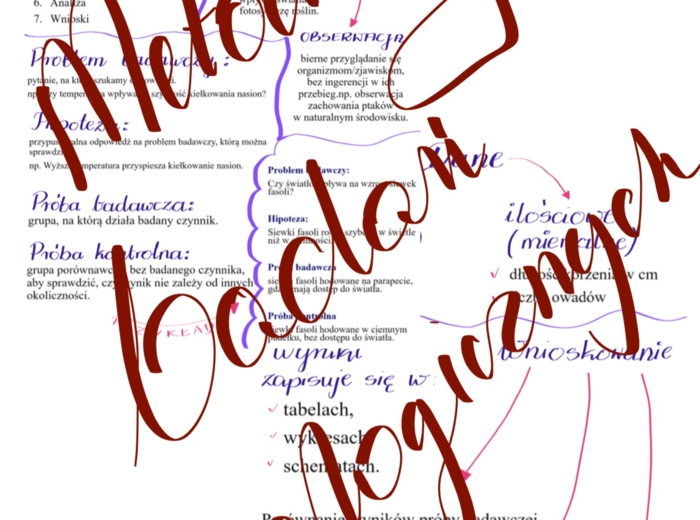 6. Analiza
7. Wnioski
Problem badawczy:
pytanie, na które szukamy odpowiedzi.
np. Czy temperatura wpływa na szybkość kiełkowania nasion?
Hipoteza:
przypuszczalna odpowiedź na problem badawczy, którą można
sprawdzić
np. Wyższa temperatura przyspiesza kiełkowanie nasion.
Próba badawcza:
grupa, na którą działa badany czynnik.
Próba kontrolna:
grupa porównawcza bez badanego czynnika,
aby sprawdzić, czy wynik nie zależy od innych
okoliczności.
OBSERWACJA
bierne przyglądanie się
organizmom/zjawiskom,
bez ingerencji w ich
przebieg.np. obserwacja
zachowania ptaków
w naturalnym środowisku.
Problem badawczy:
Czy światło wpływa na wzrost siewek
fasoli?
Hipoteza:
Siewki fasoli rosną szybciej w świetle
niż w ciemności.
Próba badawcza
siewki fasoli hodowane na parapecie,
gdzie mają dostęp do światła.
Próba kontrolna
siewki fasoli hodowane w ciemnym
pudełku, bez dostępu do światła.
wyniki
zapisuje się w:
tabelach,
wykresach
schematach.
Dane
ilościowe
(mierzalne)
długość skrzydeł w cm
liczba owadów
Wnioskowanie
Porównanie wyników próby badawczej
Metody
badań
biologicznych